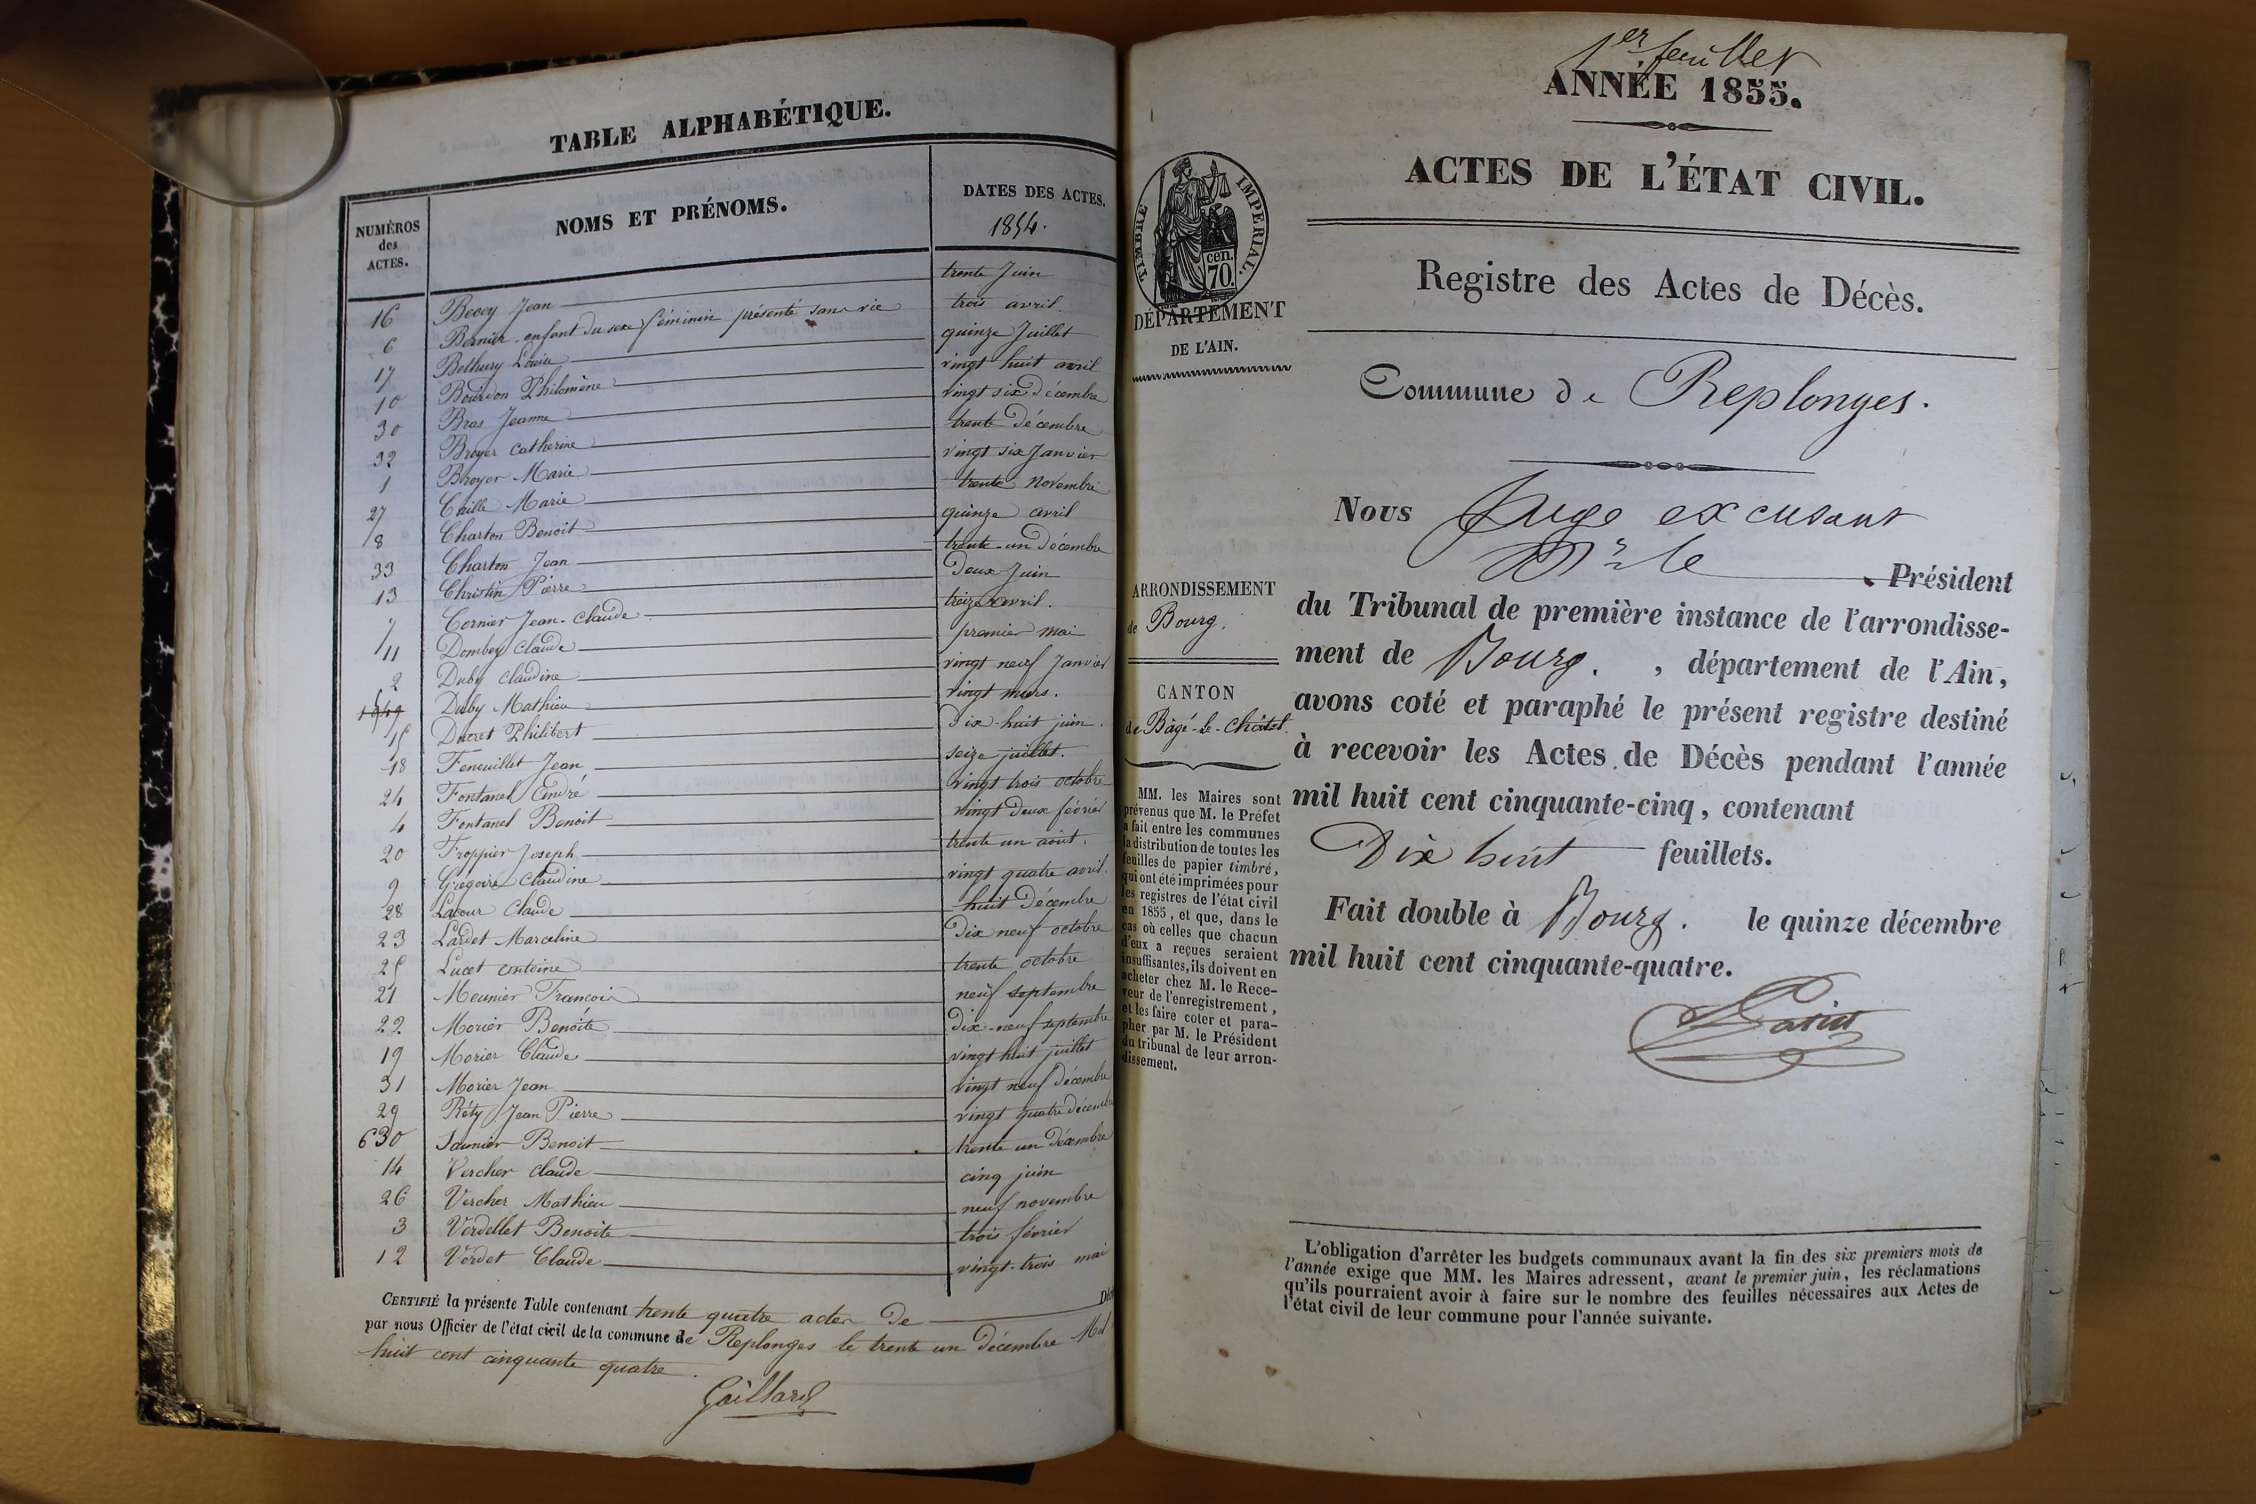 TABLE ALPHABÉTIQUE.
NUMÉROS des ACTES.
NOMS ET PRÉNOMS.
DATES DES ACTES.
1854.
16 Becey Jean trente Juin
6 Bernier enfant du sexe féminin présenté sans vie trois avril.
17 Bethury Louise quinze Juillet
10 Bourdon Philomène vingt huit avril
30 Bras Jeanne vingt six Décembre
32 Broyer Catherine trente Décembre
1 Broyer Marie vingt six Janvier
27 Caille Marie trente Novembre
8 Charton Benoit quinze avril
33 Charton Jean trente-un Décembre
13 Christin Pierre Deux Juin
7 Cornier Jean-Claude treize avril.
11 Dombey Claude premier mai
2 Duby Claudine vingt neuf Janvier
5 Duby Mathieu vingt mars.
15 Ducret Philibert Dix-huit juin.
18 Fenouillet Jean seize juillet.
24 Fontanel André vingt trois octobre
4 Fontanel Benoit vingt Deux février
20 Froppier Joseph trente un août.
9 Gregoire Claudine vingt quatre avril.
28 Lacour Claude huit Décembre
23 Lardet Marceline Dix neuf octobre
25 Lucet Antoine trente octobre
21 Meunier Francois neuf septembre
22 Morier Benoîte Dix-neuf septembre
19 Morier Claude vingt huit juillet
31 Morier Jean vingt neuf Décembre
29 Réty Jean Pierre vingt quatre Décembre
630 Saunier Benoit trente un Décembre
14 Vercher Claude cinq juin
26 Vercher Mathieu neuf novembre
3 Verdellet Benoite trois février
12 Verdet Claude vingt-trois mai
CERTIFIÉ la présente Table contenant trente quatre actes De Déc
par nous Officier de l'état civil de la commune de Replonges le trente un Décembre Mil
huit cent cinquante quatre.
Gaillard
1er feuillet
ANNÉE 1855.
ACTES DE L'ÉTAT CIVIL.
TIMBRE IMPERIAL.
cen.
70.
DÉPARTEMENT
DE L'AIN.
Registre des Actes de Décès.
Commune de Replonges.
Nous Juge excusant
Mr le Président
du Tribunal de première instance de l'arrondisse-
ment de Bourg. , département de l'Ain,
avons coté et paraphé le présent registre destiné
à recevoir les Actes de Décès pendant l'année
mil huit cent cinquante-cinq, contenant
Dix huit feuillets.
Fait double à Bourg. le quinze décembre
mil huit cent cinquante-quatre.
ARRONDISSEMENT
de Bourg.
CANTON
de Bâgé-le-Châtel.
MM. les Maires sont
prévenus que M. le Préfet
a fait entre les communes
la distribution de toutes les
feuilles de papier timbré,
qui ont été imprimées pour
les registres de l'état civil
en 1855, et que, dans le
cas où celles que chacun
d'eux a reçues seraient
insuffisantes, ils doivent en
acheter chez M. le Rece-
veur de l'enregistrement,
et les faire coter et para-
pher par M. le Président
du tribunal de leur arron-
dissement.
L'obligation d'arrêter les budgets communaux avant la fin des six premiers mois de
l'année exige que MM. les Maires adressent, avant le premier juin, les réclamations
qu'ils pourraient avoir à faire sur le nombre des feuilles nécessaires aux Actes de
l'état civil de leur commune pour l'année suivante.